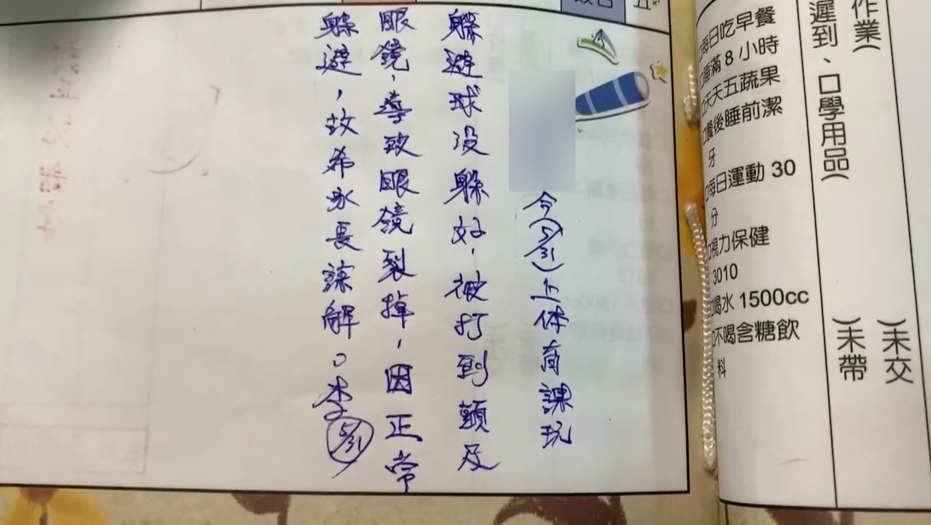 作業(　)未交
遲到、□學用品(　)未帶
□每日吃早餐
□睡滿 8 小時
□天天五蔬果
□餐後睡前潔
牙
□每日運動 30
分
□視力保健
3010
□喝水 1500cc
□不喝含糖飲
料
今(5/31)上体育課玩
躲避球沒躲好,被打到頭及
眼鏡,導致眼鏡裂掉,因正常
躲避,故希家長諒解。李 5/31